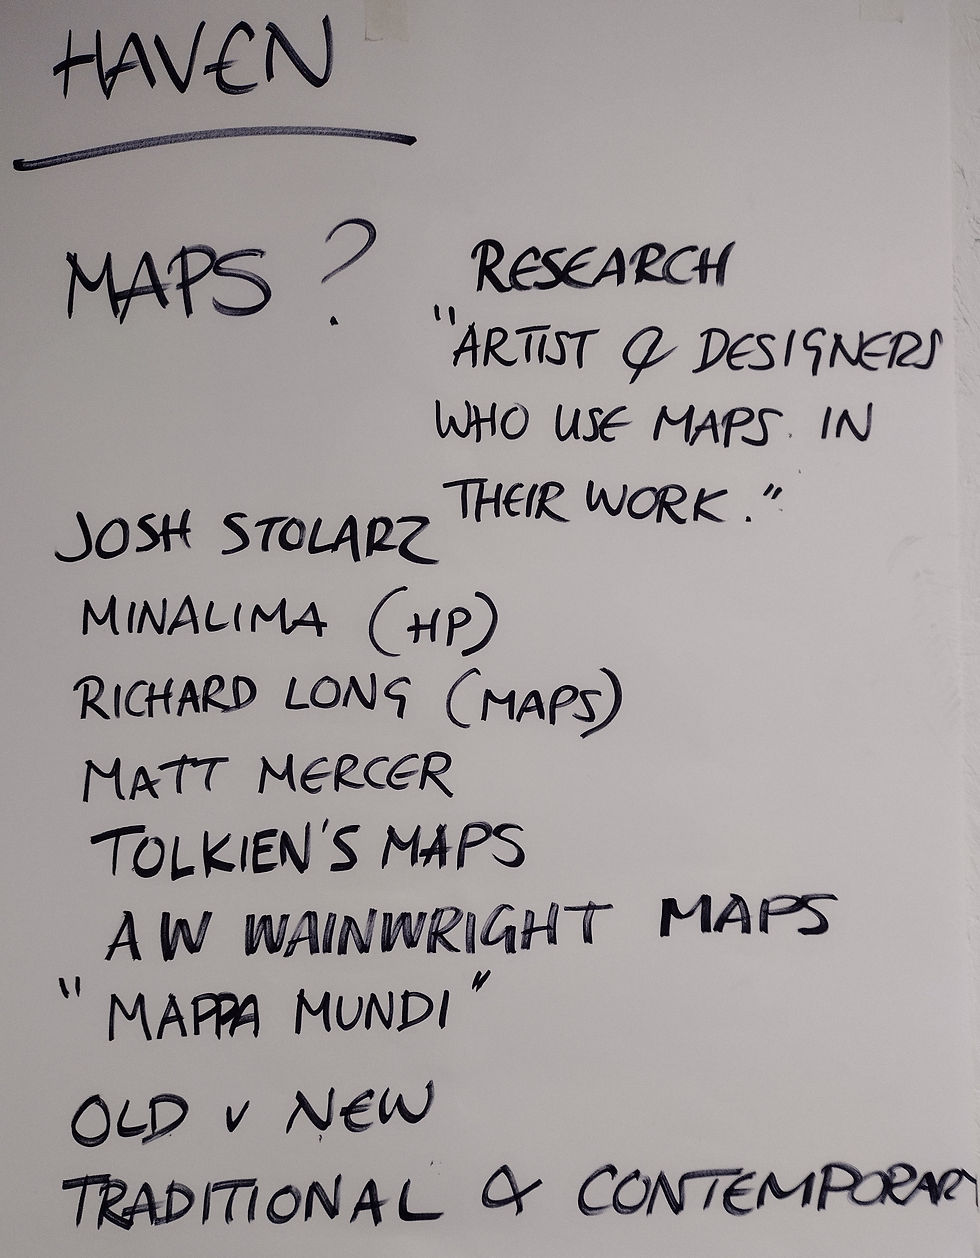 HAVEN
MAPS ?
RESEARCH
"ARTIST & DESIGNERS
WHO USE MAPS IN
THEIR WORK."
JOSH STOLARZ
MINALIMA (HP)
RICHARD LONG (MAPS)
MATT MERCER
TOLKIEN'S MAPS
AW WAINWRIGHT MAPS
"MAPPA MUNDI"
OLD v NEW
TRADITIONAL & CONTEMPORARY